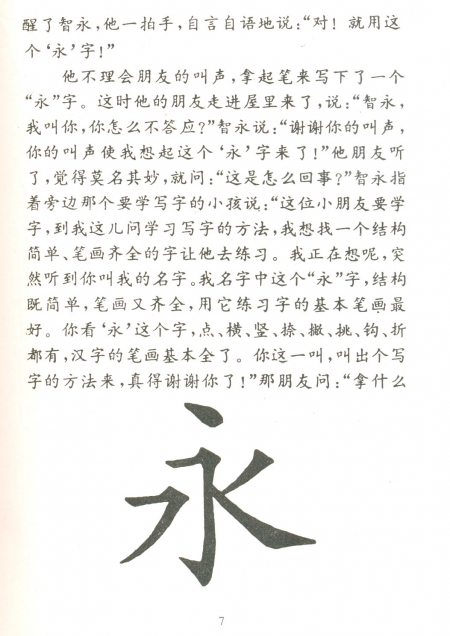 醒了智永，他一拍手，自言自语地说：“对！就用这
个‘永’字！”
他不理会朋友的叫声，拿起笔来写下了一个
“永”字。这时他的朋友走进屋里来了，说：“智永，
我叫你，你怎么不答应？”智永说：“谢谢你的叫声，
你的叫声使我想起这个‘永’字来了！”他朋友听
了，觉得莫名其妙，就问：“这是怎么回事？”智永指
着旁边那个要学写字的小孩说：“这位小朋友要学
字，到我这儿问学习写字的方法，我想找一个结构
简单、笔画齐全的字让他去练习。我正在想呢，突
然听到你叫我的名字。我名字中这个“永”字，结构
既简单，笔画又齐全，用它练习字的基本笔画最
好。你看‘永’这个字，点、横、竖、捺、撇、挑、钩、折
都有，汉字的笔画基本全了。你这一叫，叫出个写
字的方法来，真得谢谢你了！”那朋友问：“拿什么
永
7